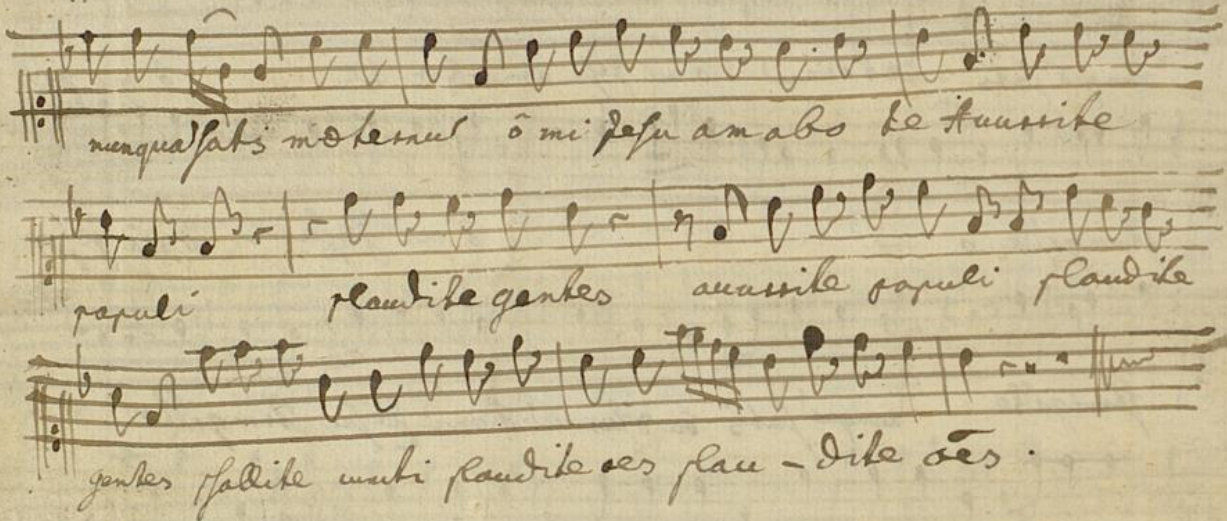 nunqua satis mæternus ô mi Jesu amabo te Accurrite
populi plaudite gentes accurrite populi plaudite
gentes psallite cuncti plaudite oes plau - dite oēs .